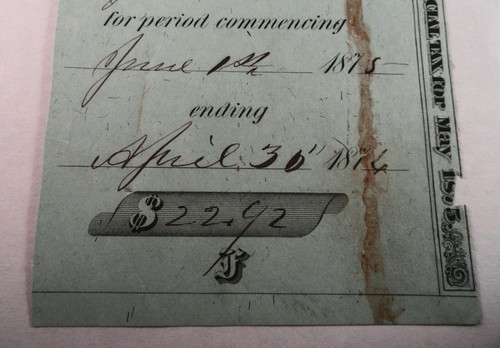 for period commencing
June 1st 1875
ending
April 30" 1876
$22.92
F
CIAL TAX for May 1875.